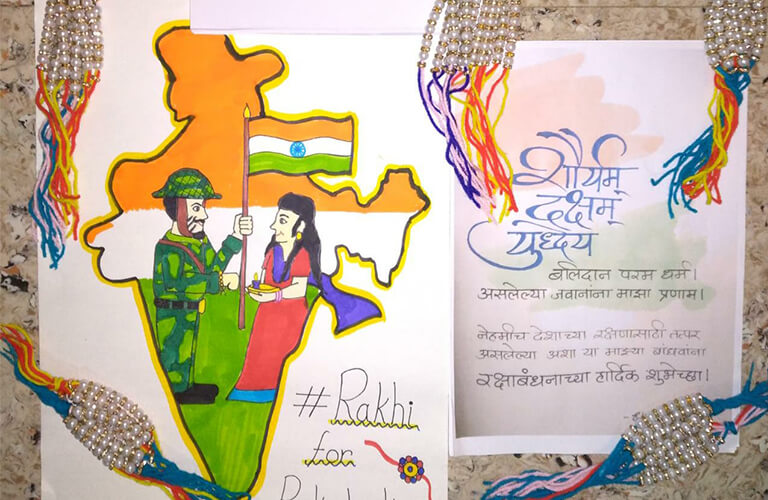 #Rakhi
for
शौर्यम्
दक्षम्
युध्देय
बलिदान परम धर्म।
असलेल्या जवानांना माझा प्रणाम।
नेहमीच देशाच्या रक्षणासाठी तत्पर
असलेल्या अशा या माझ्या बांधवांना
रक्षाबंधनाच्या हार्दिक शुभेच्छा।